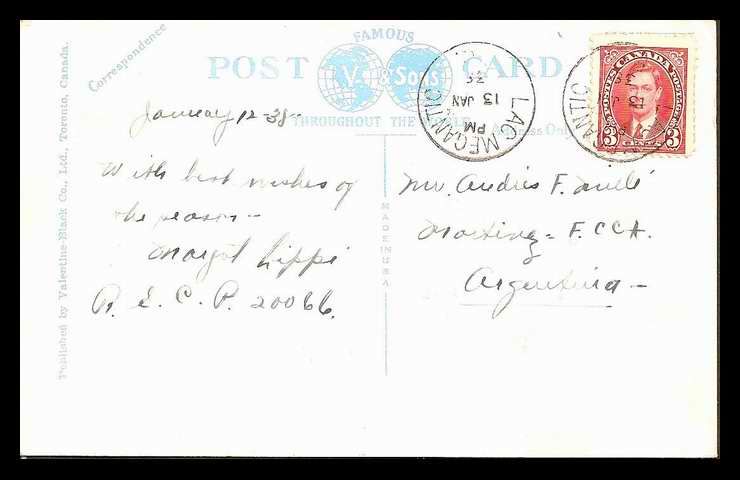 Published by Valentine-Black Co., Ltd., Toronto, Canada.
Correspondence
FAMOUS
POST V & Sons CARD
THROUGHOUT THE
Address Only
MADE IN USA
LAC MEGANTIC
PM
13 JAN
38
POSTES CANADA POSTAGE
3 3
January 12-38-
With best wishes of
the season-
Margot Lippé
R.E.C.P. 20066.
Mr. Andrés F.
F.C.C.A.
Argentina-